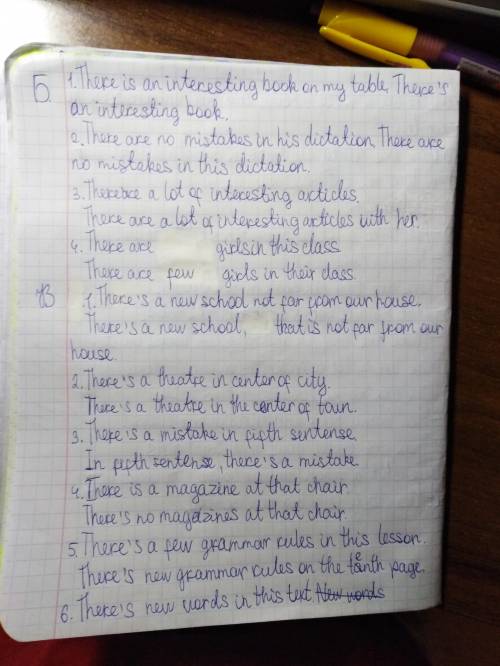 Б. 1. There is an interesting book on my table. There's
an interesting book.
2. There are no mistakes in his dictation. There are
no mistakes in this dictation.
3. There are a lot of interesting articles.
There are a lot of interesting articles with her.
4. There are girls in this class
There are few girls in their class.
В 1. There's a new school not far from our house.
There's a new school, that is not far from our
house.
2. There's a theatre in center of city.
There's a theatre in the center of town.
3. There's a mistake in fifth sentense.
In fifth sentense, there's a mistake.
4. There is a magazine at that chair.
There's no magazines at that chair.
5. There's a few grammar rules in this lesson.
There's new grammar rules on the tenth page.
6. There's new words in this text. New words